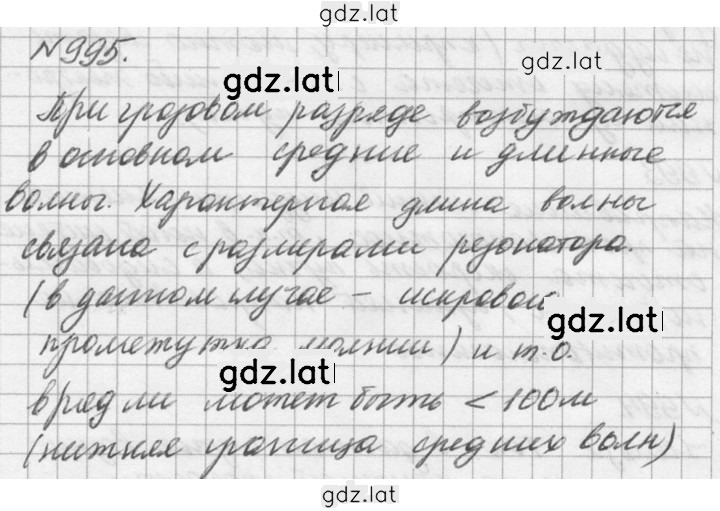 gdz.lat
№995.
gdz.lat
При грозовом разряде возбуждаются
в основном средние и длинные
волны. Характерная длина волны
связана с размерами резонатора.
(в данном случае – искровой
gdz.lat
промежутка молнии) и т.о.
gdz.lat
вряд ли может быть < 100м
(нижняя граница средних волн)
gdz.lat